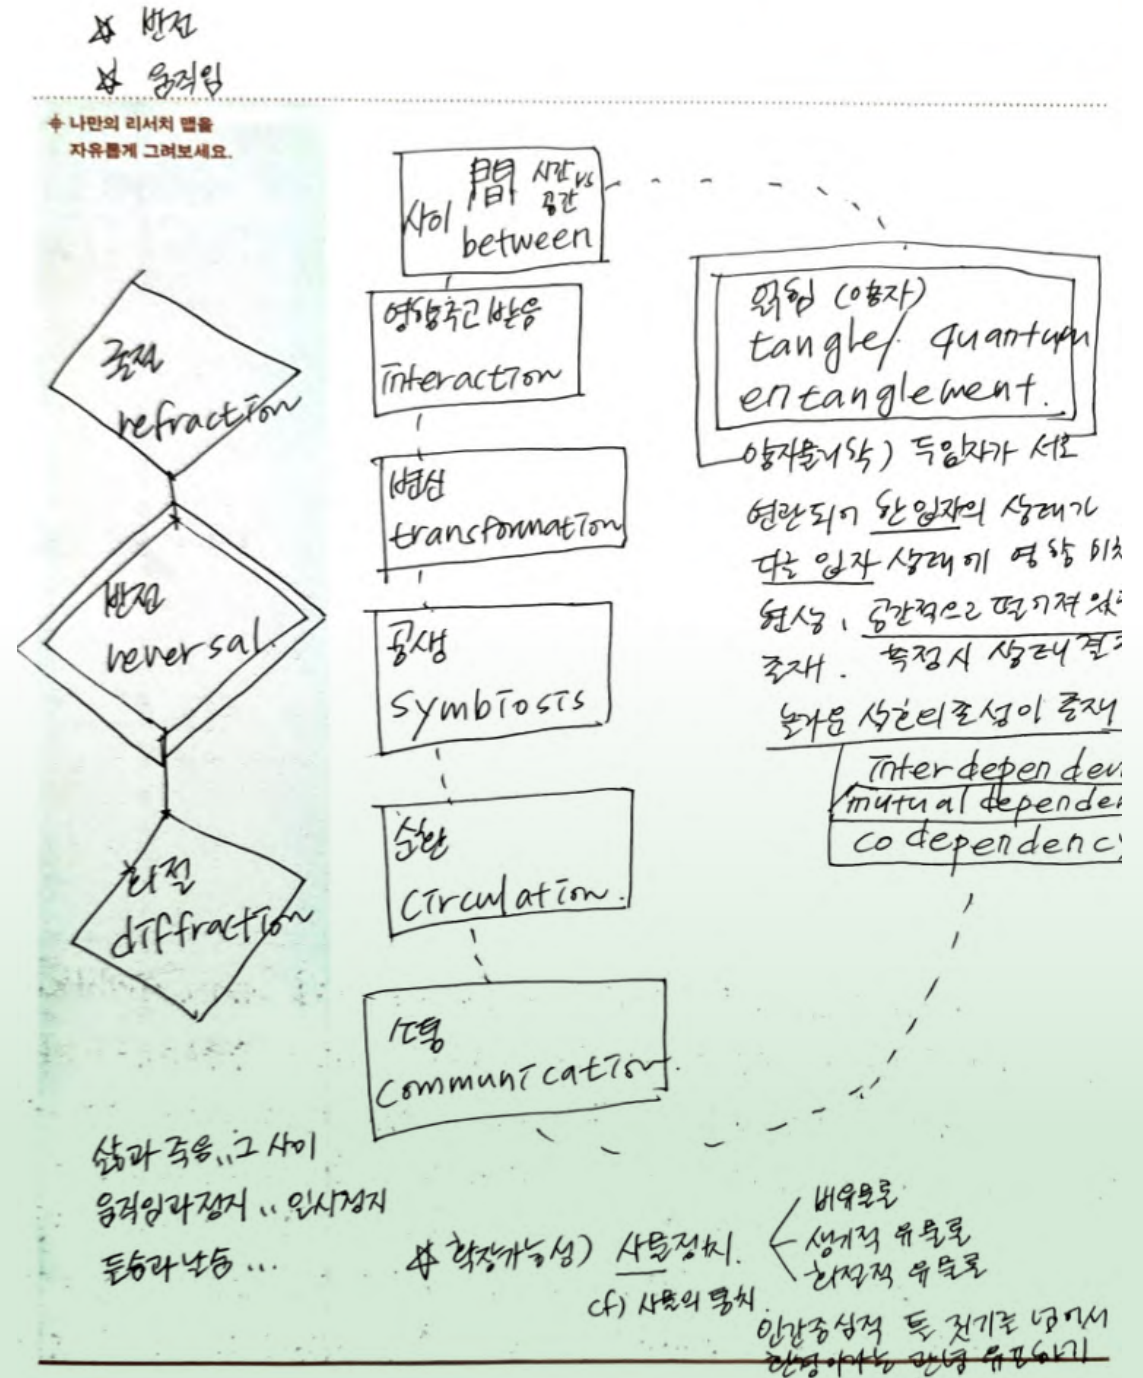 ☆ 반전
☆ 움직임
나만의 리서치 맵을
자유롭게 그려보세요.
굴절
refraction
반전
reversal.
회절
diffraction
사이 間 시간 vs 공간
between
영향주고받음
interaction
변신
transformation
공생
symbiosis
순환
circulation.
소통
communication.
얽힘 (양자)
tangle/ quantum
entanglement.
양자물리학) 두입자가 서로
연관되어 한 입자의 상태가
다른 입자 상태에 영향 미치
현상, 공간적으로 떨어져 있
존재. 측정시 상태 결
놀라운 상호의존성이 존재
interdepen den
mutual dependen
co dependency
삶과 죽음,, 그 사이
움직임과 정지 ,, 일시정지
들숨과 날숨 ...
☆ 확장가능성) 사물정치.
cf) 사물의 통치.
생기적 유물론
회절적 유물론
인간중심적 틀 짓기를 넘어서